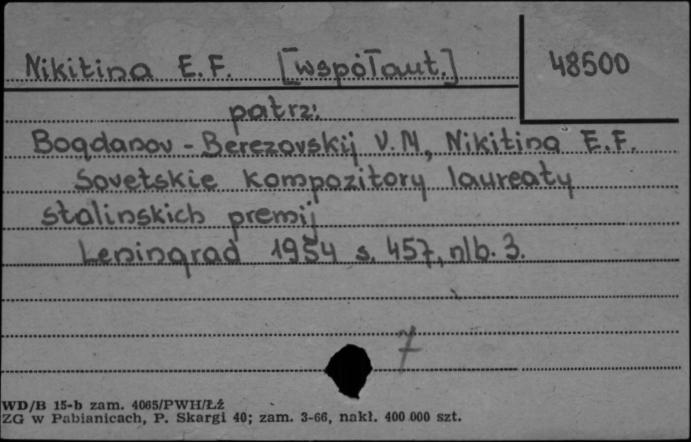 Nikitina E.F. [współaut.] 48500
patrz:
Bogdanov - Berezovskij V.M., Nikitina E.F.
Sovetskie kompozitory laureaty
stalinskich premij
Leningrad 1954 s. 457, nlb. 3.
7
WD/B 15-b zam. 4065/PWH/ŁŻ
ZG w Pabianicach, P. Skargi 40; zam. 3-66, nakł. 400 000 szt.